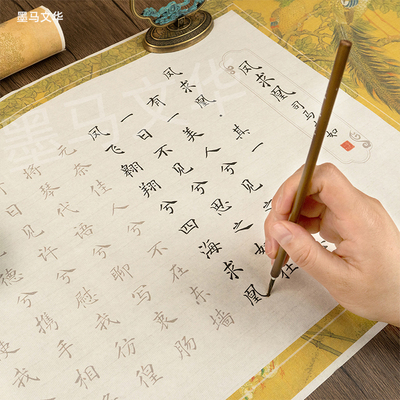 墨马文华
凤求凰
司马相如
凤求凰·其一
有一美人兮见之
一日不见兮思之如
凤飞翱翔兮四海求凰
无奈佳人兮不在东墙
将琴代语兮聊写衷肠
日见许兮慰我彷徨
德兮携手相
使我